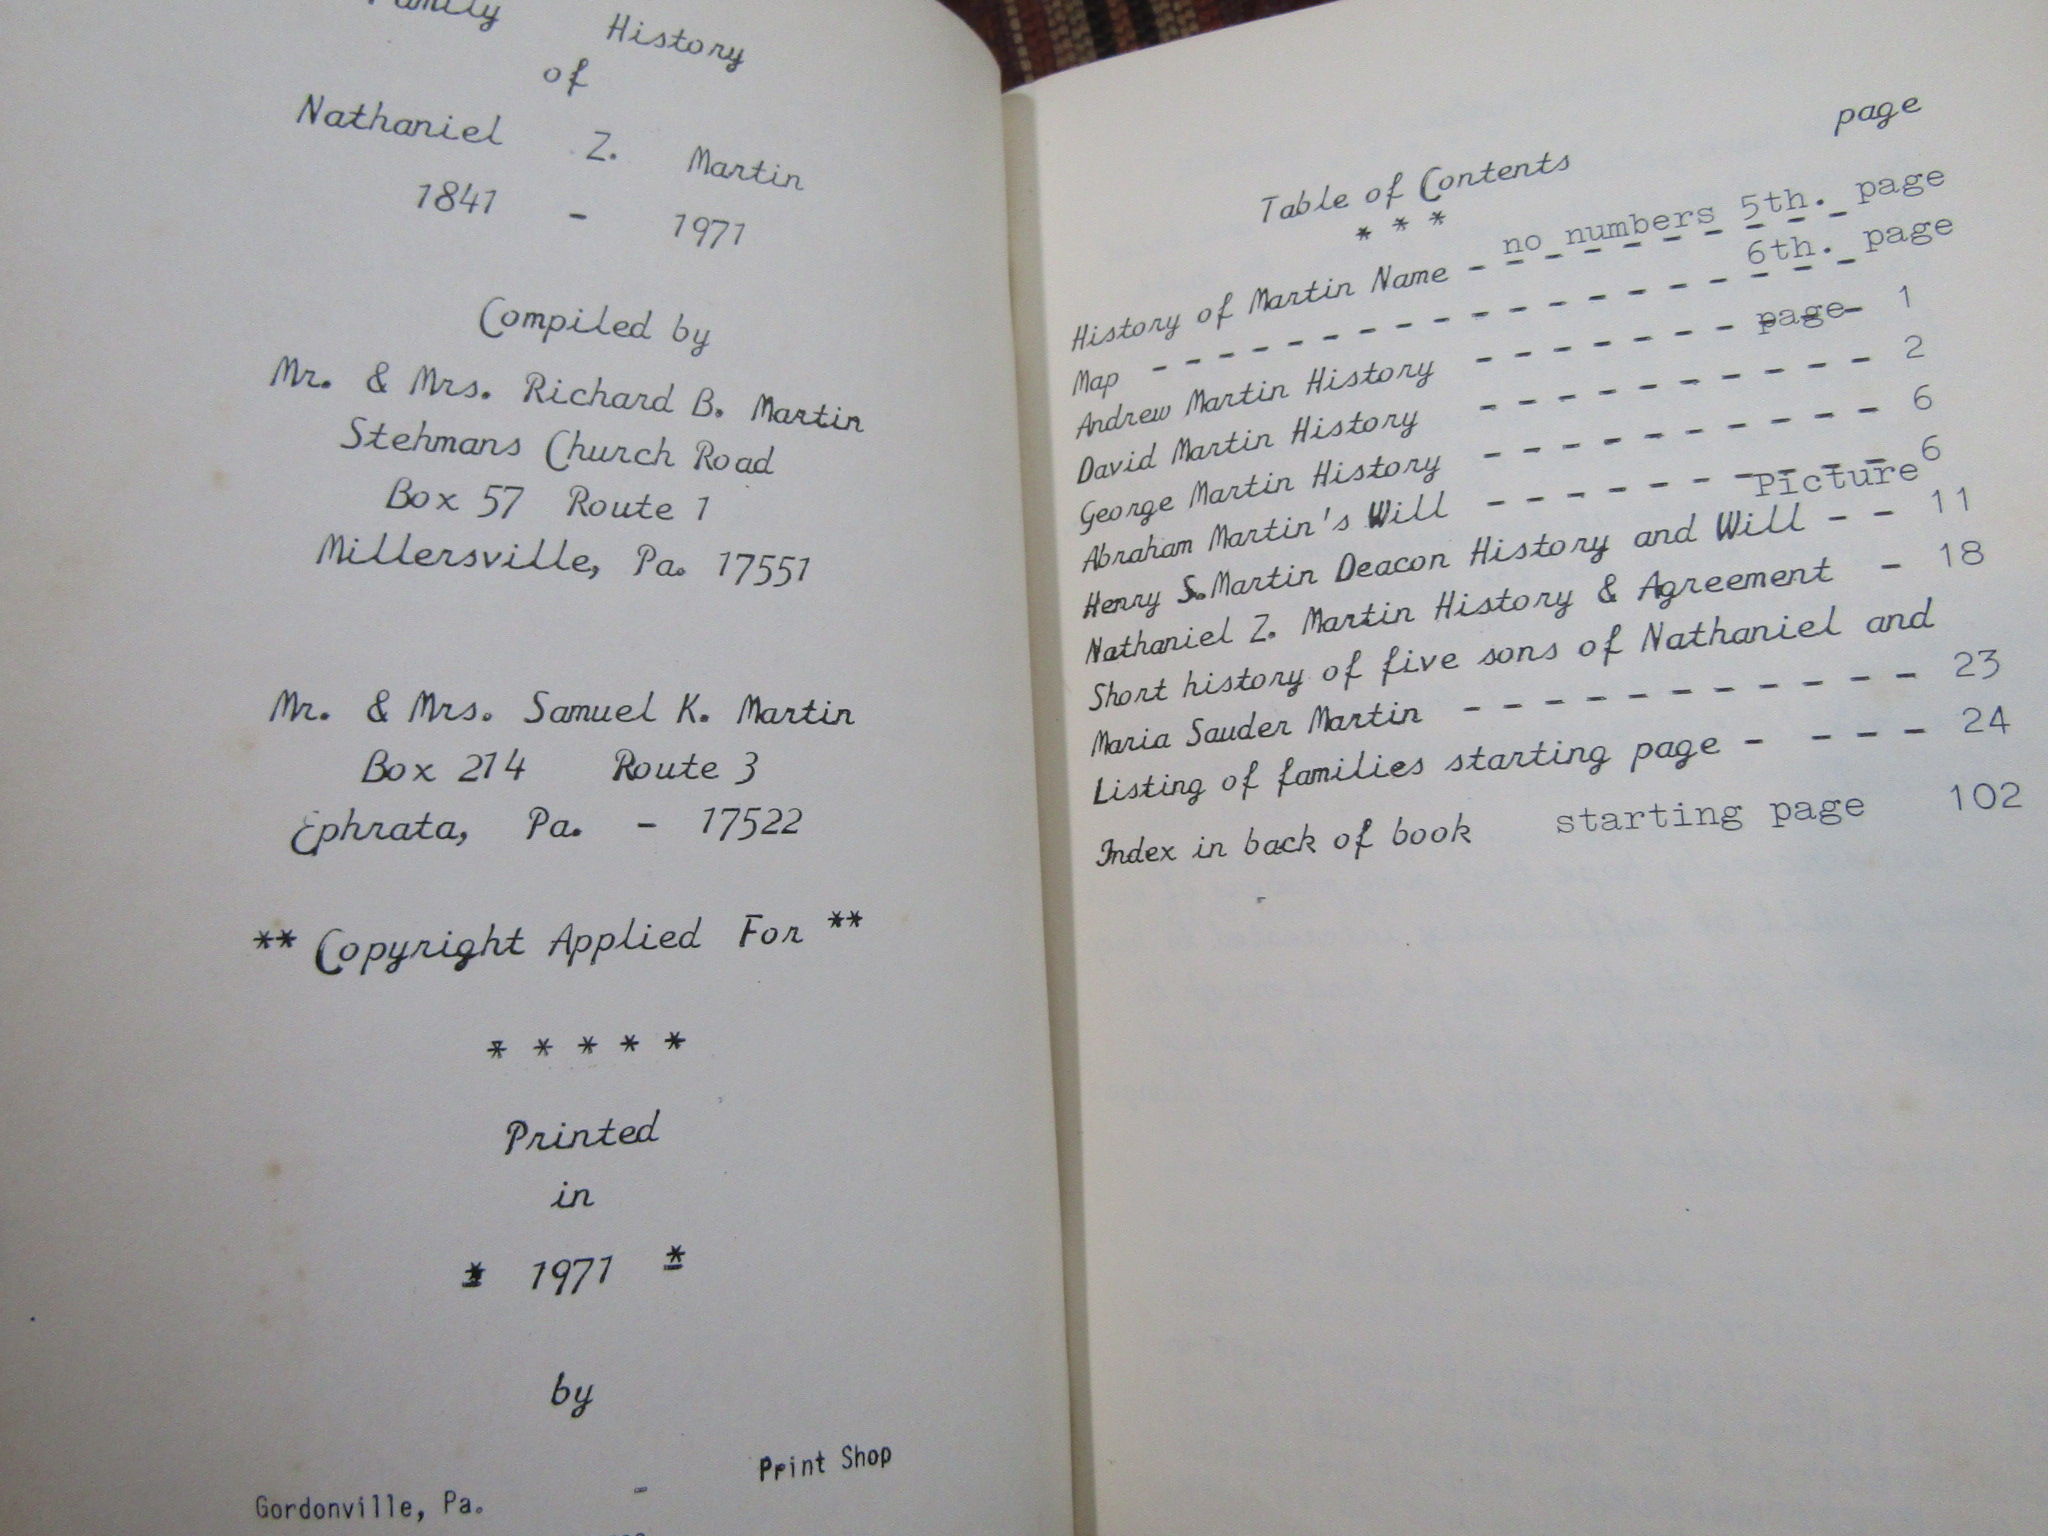 Family History
of
Nathaniel Z. Martin
1841 - 1971
Compiled by
Mr. & Mrs. Richard B. Martin
Stehmans Church Road
Box 57 Route 1
Millersville, Pa. 17551
Mr. & Mrs. Samuel K. Martin
Box 214 Route 3
Ephrata, Pa. - 17522
** Copyright Applied For **
* * * * *
Printed
in
* 1971 *
by
Gordonville, Pa. - Print Shop
page
Table of Contents
* * *
History of Martin Name - no numbers 5th. page
Map - - - - - - - - - - - - - - - - 6th. page
Andrew Martin History - - - - - - - page - 1
David Martin History - - - - - - - - - - 2
George Martin History - - - - - - - - - - 6
Abraham Martin's Will - - - - - - - - - - 6
Henry S. Martin Deacon History and Will - - Picture 11
Nathaniel Z. Martin History & Agreement - 18
Short history of five sons of Nathaniel and
Maria Sauder Martin - - - - - - - - - - - 23
Listing of families starting page - - - - 24
Index in back of book starting page 102